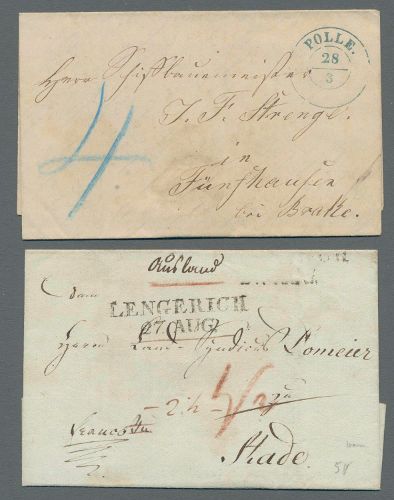 POLLE.
28
3
Herr Schiffbaumeister
J. F. Strenge
in
4
Fünfhausen
bei Brake.
Ausland
LENGERICH
27 AUG
Herrn Land-Syndicus Lomeier
zu
Stade.